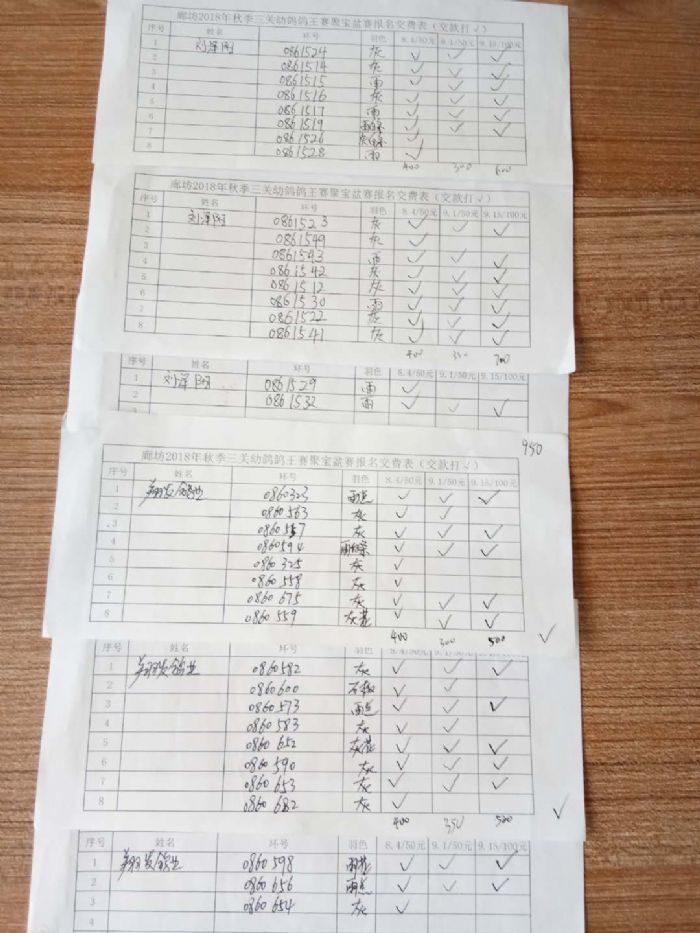 廊坊2018年秋季三关幼鸽鸽王赛聚宝盆赛报名交费表（交款打√）
序号 姓名 环号 羽色 8.4/50元 9.1/50元 9.15/100元
1 刘泽阳 0861524 灰 √ √ √
2 0861514 灰 √ √ √
3 0861515 雨 √ √ √
4 0861516 灰 √ √ √
5 0861517 雨 √ √ √
6 0861519 √ √ √
7 0861526 √
8 0861528 雨 √
400 300 600
廊坊2018年秋季三关幼鸽鸽王赛聚宝盆赛报名交费表（交款打√）
序号 姓名 环号 羽色 8.4/50元 9.1/50元 9.15/100元
1 刘泽阳 0861523 灰 √ √ √
2 0861549 灰 √
3 0861543 雨 √ √ √
4 0861542 灰 √ √ √
5 0861512 灰 √ √ √
6 0861530 雨 √ √ √
7 0861522 灰 √ √ √
8 0861541 灰 √ √ √
400 350 700
序号 姓名 环号 羽色 8.4/50元 9.1/50元 9.15/100元
1 刘泽阳 0861529 雨 √
2 0861532 雨 √ √ √
3
950
廊坊2018年秋季三关幼鸽鸽王赛聚宝盆赛报名交费表（交款打√）
序号 姓名 环号 羽色 8.4/50元 9.1/50元 9.15/100元
1 翔发鸽业 0860323 雨点 √ √ √
2 0860563 灰 √ √
3 0860557 灰 √ √ √
4 0860594 √ √ √
5 0860325 灰 √
6 0860558 灰 √
7 0860675 灰 √ √ √
8 0860559 灰花 √ √ √
400 300 500 √
1 翔发鸽业 0860582 灰 √ √ √
2 0860600 √ √
3 0860573 雨点 √ √ √
4 0860583 灰 √ √
5 0860652 灰花 √ √ √
6 0860590 灰 √ √ √
7 0860653 灰 √ √ √
8 0860682 灰 √
400 350 500 √
序号 姓名 环号 羽色 8.4/50元 9.1/50元 9.15/100元
1 翔发鸽业 0860598 雨花 √ √ √
2 0860656 雨点 √ √ √
3 0860654 灰 √
4